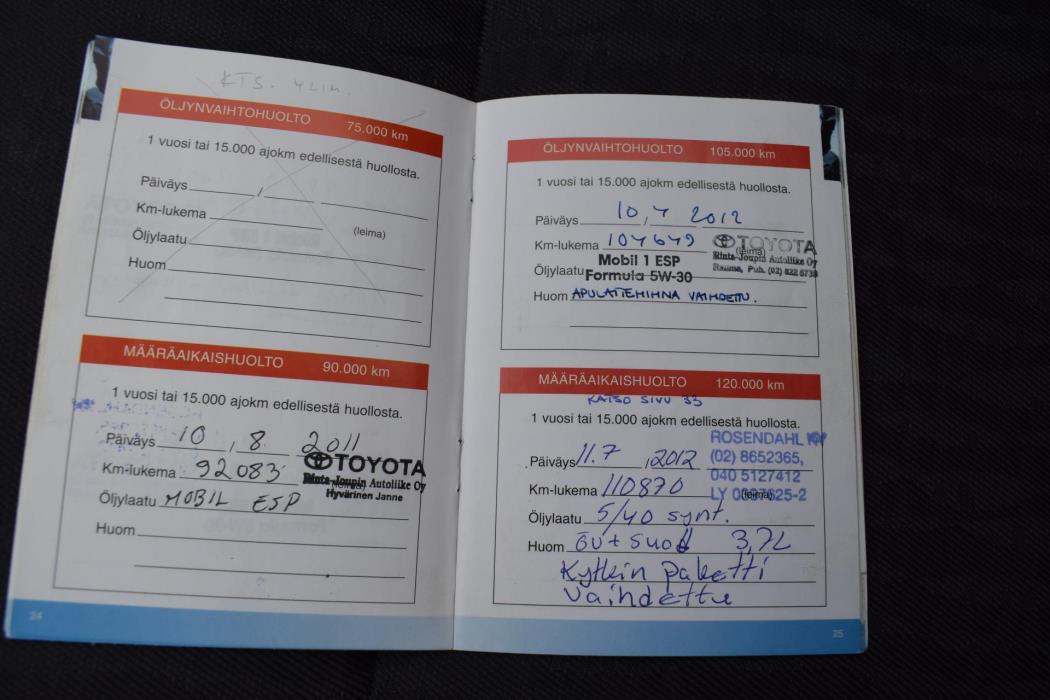 KTS. YLIM.
ÖLJYNVAIHTOHUOLTO 75.000 km
1 vuosi tai 15.000 ajokm edellisestä huollosta.
Päiväys
Km-lukema
(leima)
Öljylaatu
Huom
MÄÄRÄAIKAISHUOLTO 90.000 km
1 vuosi tai 15.000 ajokm edellisestä huollosta.
Päiväys 10 , 8 2011
Km-lukema 92083
TOYOTA
Rinta-Joupin Autoliike Oy
Hyvärinen Janne
Öljylaatu MOBIL ESP
Huom
24
ÖLJYNVAIHTOHUOLTO 105.000 km
1 vuosi tai 15.000 ajokm edellisestä huollosta.
Päiväys 10 , 4 2012
Km-lukema 104649
TOYOTA
(leima)
Rinta-Joupin Autoliike Oy
Rauma, Puh. (02) 822 6730
Mobil 1 ESP
Öljylaatu Formula 5W-30
Huom APULAITEHIHNA VAIHDETTU.
MÄÄRÄAIKAISHUOLTO 120.000 km
KATSO SIVU 33
1 vuosi tai 15.000 ajokm edellisestä huollosta.
ROSENDAHL
(02) 8652365,
040 5127412
Päiväys 11.7 , 2012
Km-lukema 110870
(leima)
Öljylaatu 5/40 synt.
Huom 3,7L
Kytkin paketti
vaihdettu
25